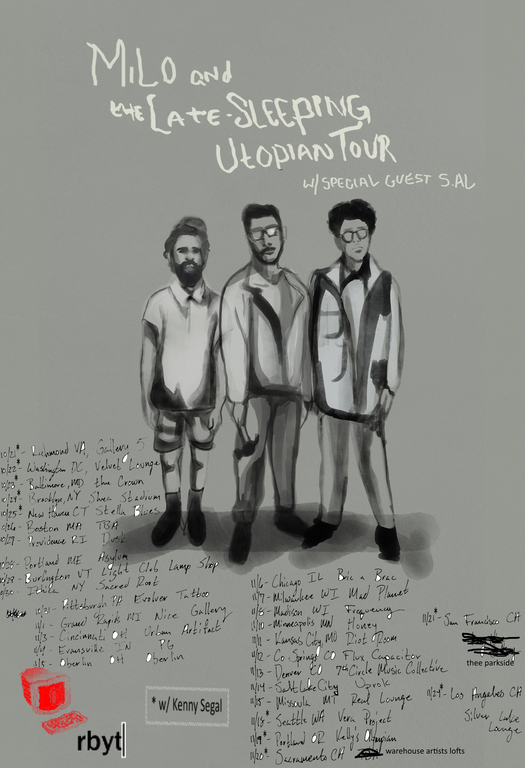 MILO and
the LATE-SLEEPING
UTOPIAN TOUR
W/ SPECIAL GUEST S.AL
10/21* - Richmond VA, Gallery 5
10/22* - Washington DC, Velvet Lounge
10/23* - Baltimore, MD the Crown
10/24* - Brooklyn, NY Shea Stadium
10/25* - New Haven CT Stella Blues
10/26 - Boston MA TBA
10/27 - Providence RI Dusk
10/28 - Portland ME Asylum
10/29 - Burlington VT Light Club Lamp Shop
NY Sacred Root
Pittsburgh PA Evolver Tattoo
11/1 - Grand Rapids MI Nice Gallery
11/3 - Cincinnati OH Urban Artifact
11/4 - Evansville IN PG
11/5 - Oberlin OH Oberlin
11/6 - Chicago IL Bric a Brac
11/7 - Milwaukee WI Mad Planet
11/8 - Madison WI, Frequency
11/10 - Minneapolis MN Honey
11/11 - Kansas City, MO Riot Room
11/12 - Co Springs CO Flux Capacitor
11/13 - Denver CO 7th Circle Music Collective
11/14 - Salt Lake City
11/15 - Missoula MT Real Lounge
11/18* - Seattle WA Vera Project
11/19* - Portland OR Kelly's Olympian
11/20* - Sacramento CA warehouse artists lofts
11/21* - San Francisco CA
thee parkside
11/24* - Los Angeles CA
Silver Lake
Lounge
* w/ Kenny Segal
rbyt